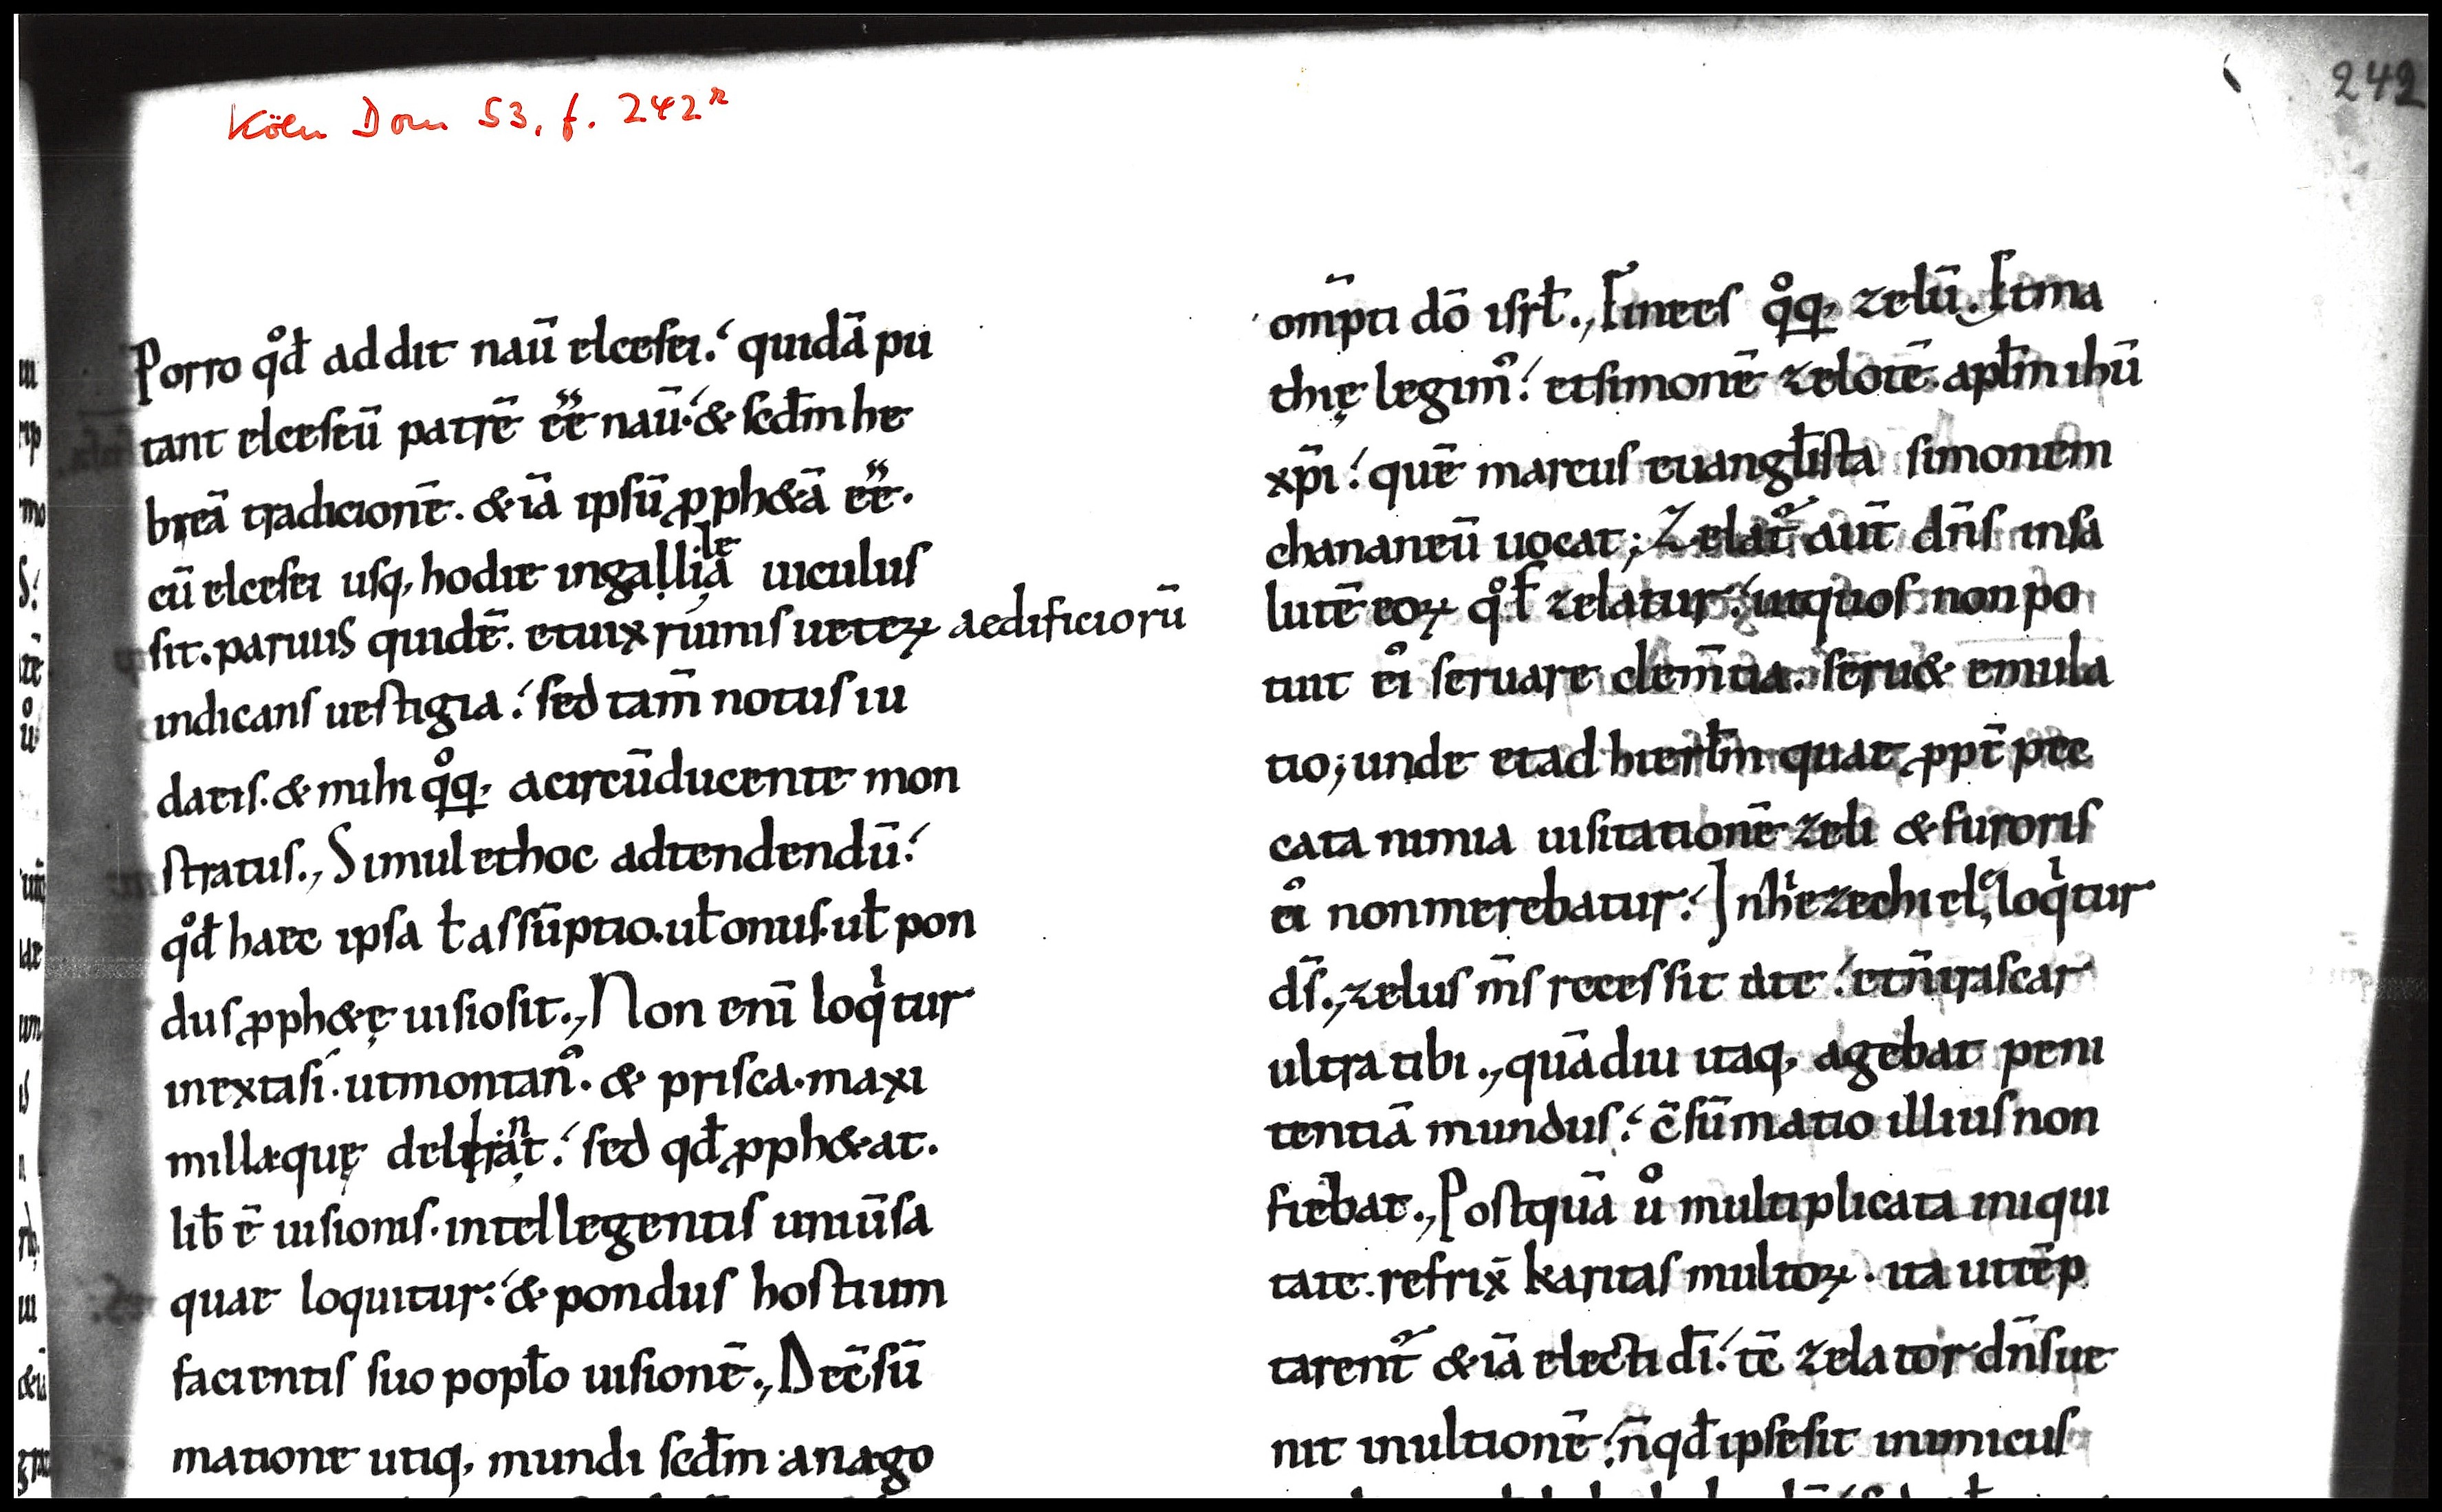 Köln Dom 53, f. 242r
242
Porro qd̊ addit naū elcesei.ˊ quidā pu
tant elceseū patrē ēē naū.ˊ & scd̄m he
breā tradicionē. & iā ipsū ꝓph&ā ēē.
cū elcesei usq, hodie ingallileā uiculus
sit. paruus quidē. etuix ruinis ueteꝝ aedificiorū
indicans uestigia.ˊ sed tam̄ notus iu
daeis. & mihi q̊q, acircūducente mon
stratus., Simul ethoc adtendendū.ˊ
qd̊ haec ipsa ł assūptio. uł onus. uł pon
dus ꝓph&ę uisiosit., Non enī loqͥtur
inextasi. utmontan᾿. & prisca. maxi
millaquę delirant.ˊ sed qđ ꝓph&at.
lib̄ ē uisionis. intellegentis uniūsa
quae loquitur.ˊ & pondus hostium
facientis suo popło uisionē., Decc̄sū
matione utiq, mundi scd̄m anago
om̄pti dō isrł., Finees q̊q, zelū. Etma
thię legim᾿.ˊ etsimonē zelotē. apłm ihū
xp̄i.ˊ quē marcus euangłista simonem
chananeū uocat; Zelat᷑ aut̄ dn̄s insa
lutē eoꝝ qͦꝶ zelatur.ˊ utquos non po
tuit ei᾿ seruare clem̄tia. seru& emula
tio; unde etad hierłm quae ꝓpt̄ pec
cata nimia uisitationē zeli & furoris
ei᾿ nonmerebatur.ˊ Inhiezechiele, loqͥtur
ds̄., zelus m̄s recessit ate.ˊ etn̄irascar
ultra tibi., quādiu itaq, agebat peni
tentiā mundus.ˊ c̄sūmatio illius non
fiebat., Postquā ů multiplicata iniqui
tate. refrix̄ karitas multoꝝ. ita uttēp
tarent᷑ & iā electi dī.ˊ tc̄ zelator dn̄sue
nit inultionē.ˊ n̄qđ ipsesit inimicus